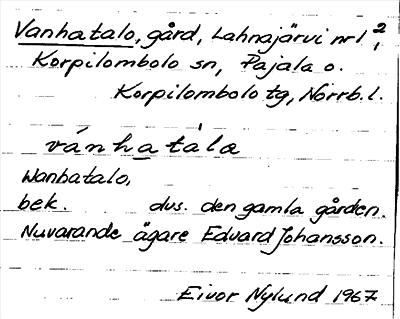 Vanhatalo, gård, Lahnajärvi nr 1²,
Korpilombolo sn, Pajala o.
Korpilombolo tg, Norrb. l.
vánhatàla
Wanhatalo,
bek. dvs. den gamla gården.
Nuvarande ägare Edvard Johansson.
Eivor Nylund 1967